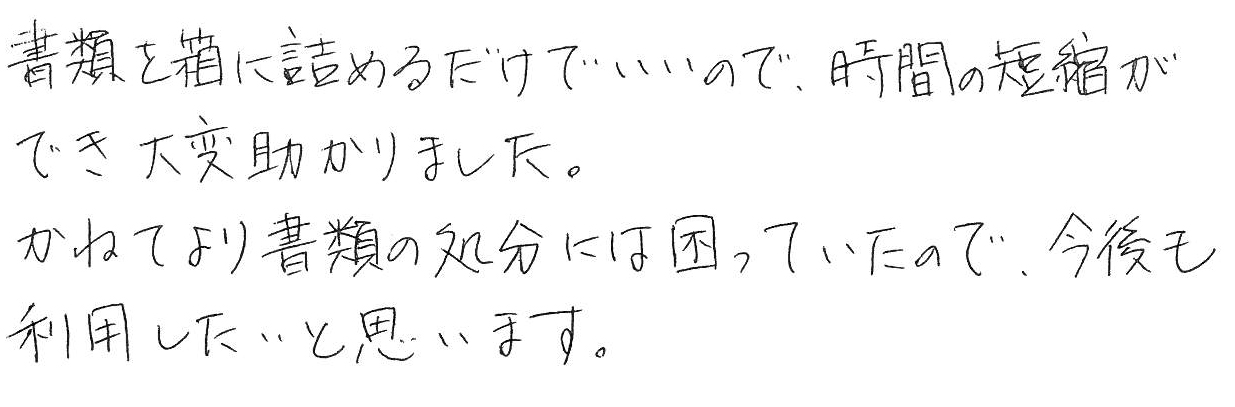 書類を箱に詰めるだけでいいので、時間の短縮が
でき大変助かりました。
かねてより書類の処分には困っていたので、今後も
利用したいと思います。